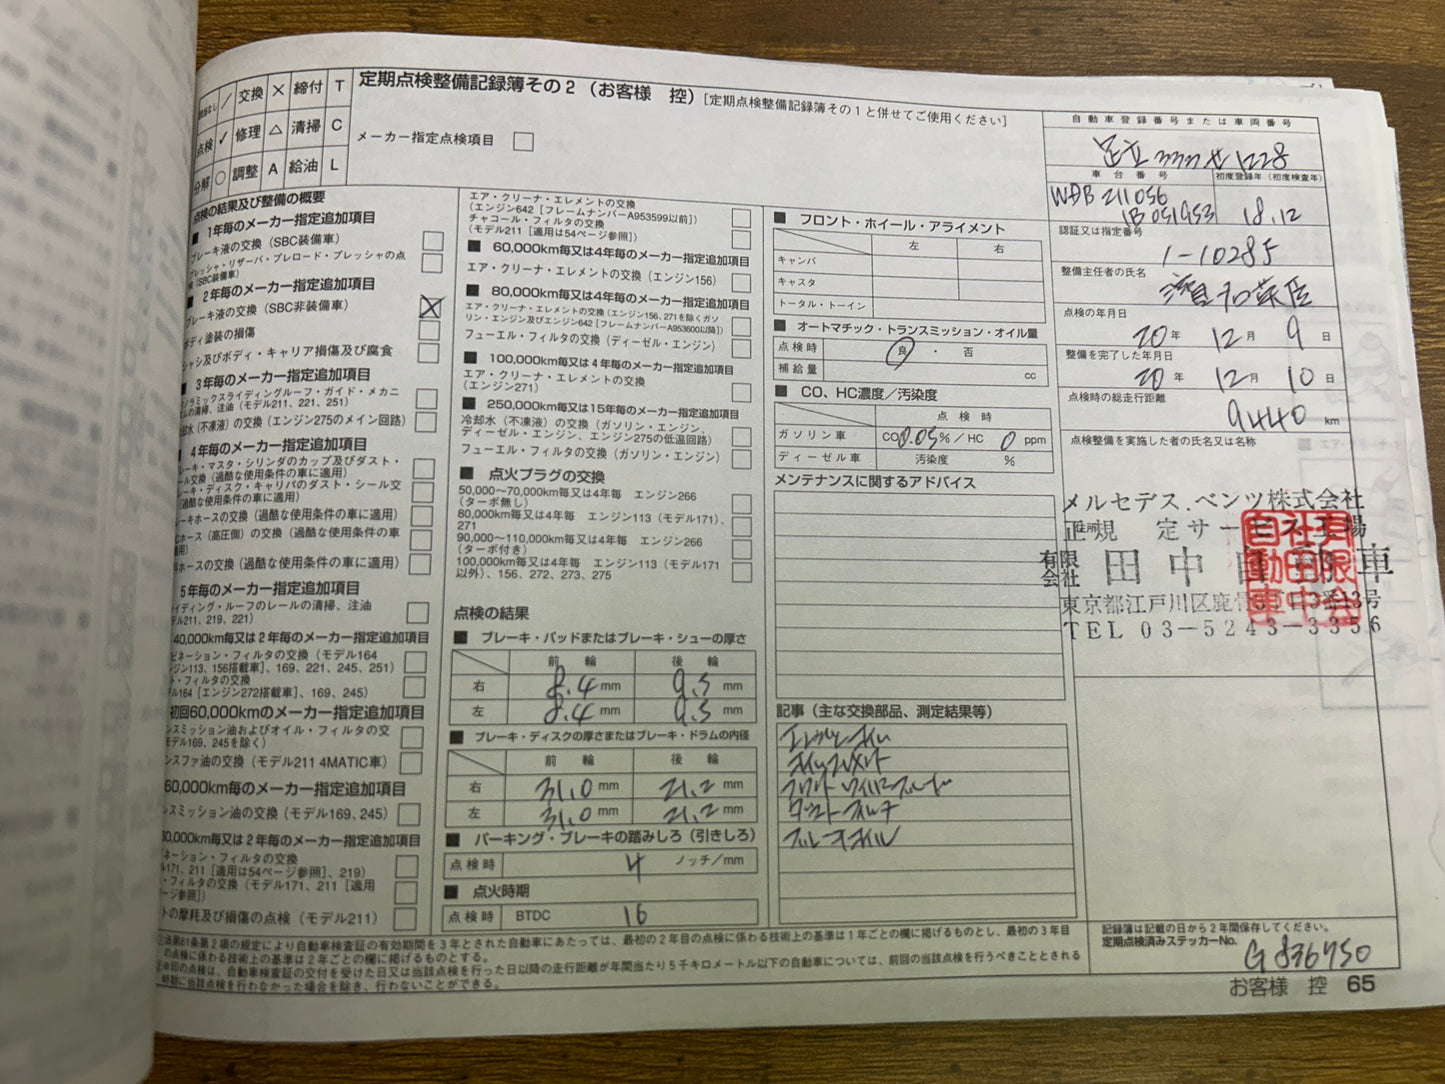 交換 × 締付 T
点検 ✓ 修理 △ 清掃 C
分解 ○ 調整 A 給油 L
定期点検整備記録簿その2（お客様 控）[定期点検整備記録簿その1と併せてご使用ください]
メーカー指定点検項目
点検の結果及び整備の概要
■ 1年毎のメーカー指定追加項目
ブレーキ液の交換（SBC装備車）
プレッシャ・リザーバ・プレロード・プレッシャの点
検（SBC装備車）
■ 2年毎のメーカー指定追加項目
ブレーキ液の交換（SBC非装備車）
ボディ塗装の損傷
シャシ及びボディ・キャリア損傷及び腐食
■ 3年毎のメーカー指定追加項目
ノラミックスライディングルーフ・ガイド・メカニ
ムの清掃、注油（モデル211、221、251）
冷却水（不凍液）の交換（エンジン275のメイン回路）
■ 4年毎のメーカー指定追加項目
レーキ・マスタ・シリンダのカップ及びダスト・
ール交換（過酷な使用条件の車に適用）
レーキ・ディスク・キャリパのダスト・シール交
（過酷な使用条件の車に適用）
レーキホースの交換（過酷な使用条件の車に適用）
Cホース（高圧側）の交換（過酷な使用条件の車
適用）
ホースの交換（過酷な使用条件の車に適用）
5年毎のメーカー指定追加項目
ライディング・ルーフのレールの清掃、注油
デル211、219、221）
40,000km毎又は2年毎のメーカー指定追加項目
ビネーション・フィルタの交換（モデル164
ンジン113、156搭載車]、169、221、245、251）
ト・フィルタの交換
ル164 [エンジン272搭載車]、169、245）
初回60,000kmのメーカー指定追加項目
ンスミッション油およびオイル・フィルタの交
モデル169、245を除く）
ンスファ油の交換（モデル211 4MATIC車）
60,000km毎のメーカー指定追加項目
ンスミッション油の交換（モデル169、245）
0,000km毎又は2年毎のメーカー指定追加項目
ビネーション・フィルタの交換
ル171、211 [適用は54ページ参照]、219）
・フィルタの交換（モデル171、211 [適用
ページ参照]）
トの摩耗及び損傷の点検（モデル211）
エア・クリーナ・エレメントの交換
（エンジン642 [フレームナンバーA953599以前]）
チャコール・フィルタの交換
（モデル211 [適用は54ページ参照]）
■ 60,000km毎又は4年毎のメーカー指定追加項目
エア・クリーナ・エレメントの交換（エンジン156）
■ 80,000km毎又は4年毎のメーカー指定追加項目
エア・クリーナ・エレメントの交換（エンジン156、271を除くガソ
リン・エンジン及びエンジン642 [フレームナンバーA953600以降]）
フューエル・フィルタの交換（ディーゼル・エンジン）
■ 100,000km毎又は4年毎のメーカー指定追加項目
エア・クリーナ・エレメントの交換
（エンジン271）
■ 250,000km毎又は15年毎のメーカー指定追加項目
冷却水（不凍液）の交換（ガソリン・エンジン、
ディーゼル・エンジン、エンジン275の低温回路）
フューエル・フィルタの交換（ガソリン・エンジン）
■ 点火プラグの交換
50,000～70,000km毎又は4年毎 エンジン266
（ターボ無し）
80,000km毎又は4年毎 エンジン113（モデル171）、
271
90,000～110,000km毎又は4年毎 エンジン266
（ターボ付き）
100,000km毎又は4年毎 エンジン113（モデル171
以外）、156、272、273、275
点検の結果
■ ブレーキ・パッドまたはブレーキ・シューの厚さ
前 輪 後 輪
右 8.4 mm 9.5 mm
左 8.4 mm 9.5 mm
■ ブレーキ・ディスクの厚さまたはブレーキ・ドラムの内径
前 輪 後 輪
右 31.0 mm 21.2 mm
左 31.0 mm 21.2 mm
■ パーキング・ブレーキの踏みしろ（引きしろ）
点検時 4 ノッチ/mm
■ 点火時期
点検時 BTDC 16
■ フロント・ホイール・アライメント
左 右
キャンバ
キャスタ
トータル・トーイン
■ オートマチック・トランスミッション・オイル量
点検時 良 ・ 否
補給量 cc
■ CO、HC濃度／汚染度
点 検 時
ガソリン車 CO 0.05 %／HC 0 ppm
ディーゼル車 汚染度 %
メンテナンスに関するアドバイス
記事（主な交換部品、測定結果等）
エンジンオイル
オイルエレメント
フロントワイパーブレード
ダストフィルタ
ブレーキオイル
自動車登録番号または車両番号
足立 333 せ 1228
車 台 番 号 初度登録年（初度検査年）
WDB 211056
1B 051953 18.12
認証又は指定番号
1-10285
整備主任者の氏名
点検の年月日
20 年 12 月 9 日
整備を完了した年月日
20 年 12 月 10 日
点検時の総走行距離
9440 km
点検整備を実施した者の氏名又は名称
メルセデス.ベンツ株式会社
正規 定サービス工場
有限会社 田中自動車
東京都江戸川区鹿骨
TEL 03-5243-3356
法第61条第2項の規定により自動車検査証の有効期間を3年とされた自動車にあたっては、最初の2年目の点検に係わる技術上の基準は1年ごとの欄に掲げるものとし、最初の3年目
の点検に係わる技術上の基準は2年ごとの欄に掲げるものとする。
印の点検は、自動車検査証の交付を受けた日又は当該点検を行った日以降の走行距離が年間当たり5千キロメートル以下の自動車については、前回の当該点検を行うべきこととされる
時期に当該点検を行わなかった場合を除き、行わないことができる。
記録簿は記載の日から2年間保存してください。
定期点検済みステッカーNo.
G 836750
お客様 控 65